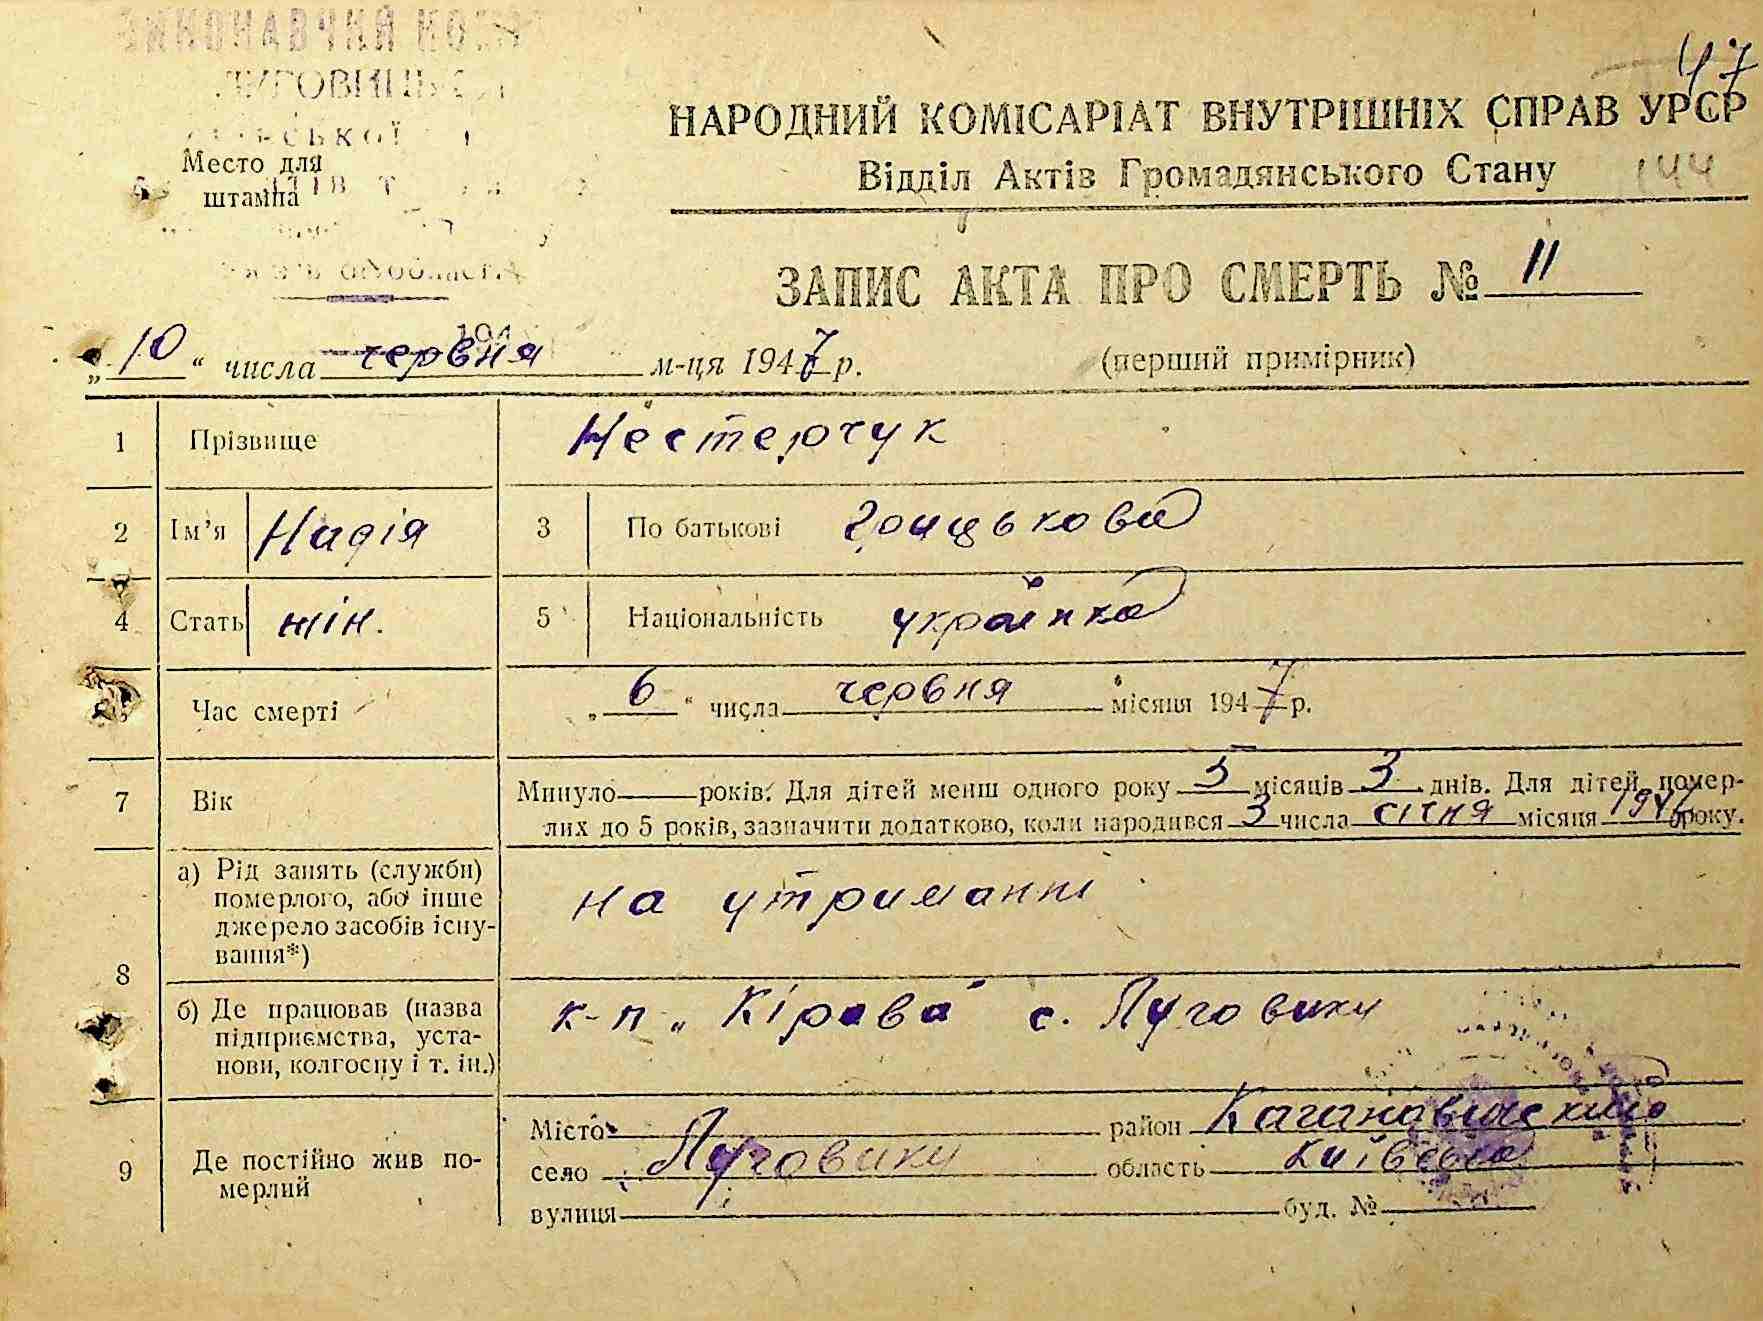 ВИКОНАВЧИЙ
ЛУГОВИЦЬ
СІЛЬСЬКОЇ
Место для
штампа
47
НАРОДНИЙ КОМІСАРІАТ ВНУТРІШНІХ СПРАВ УРСР
Відділ Актів Громадянського Стану 144
ЗАПИС АКТА ПРО СМЕРТЬ № 11
„10“ числа червня м-ця 1947 р. (перший примірник)
1 Прізвище Нестерчук
2 Ім'я Надія 3 По батькові Грицькова
4 Стать жін. 5 Національність українка
Час смерті „6“ числа червня місяця 1947 р.
7 Вік Минуло — років. Для дітей менш одного року 5 місяців 3 днів. Для дітей, помер-
лих до 5 років, зазначити додатково, коли народився 3 числа січня місяця 1947 року.
8 а) Рід занять (служби)
померлого, або інше
джерело засобів існу-
вання*)
на утриманні
б) Де працював (назва
підприємства, уста-
нови, колгоспу і т. ін.)
к-п „Кірова" с. Луговики
9 Де постійно жив по-
мерлий
Місто район Кагановицького
село Луговики область Київська
вулиця буд. №